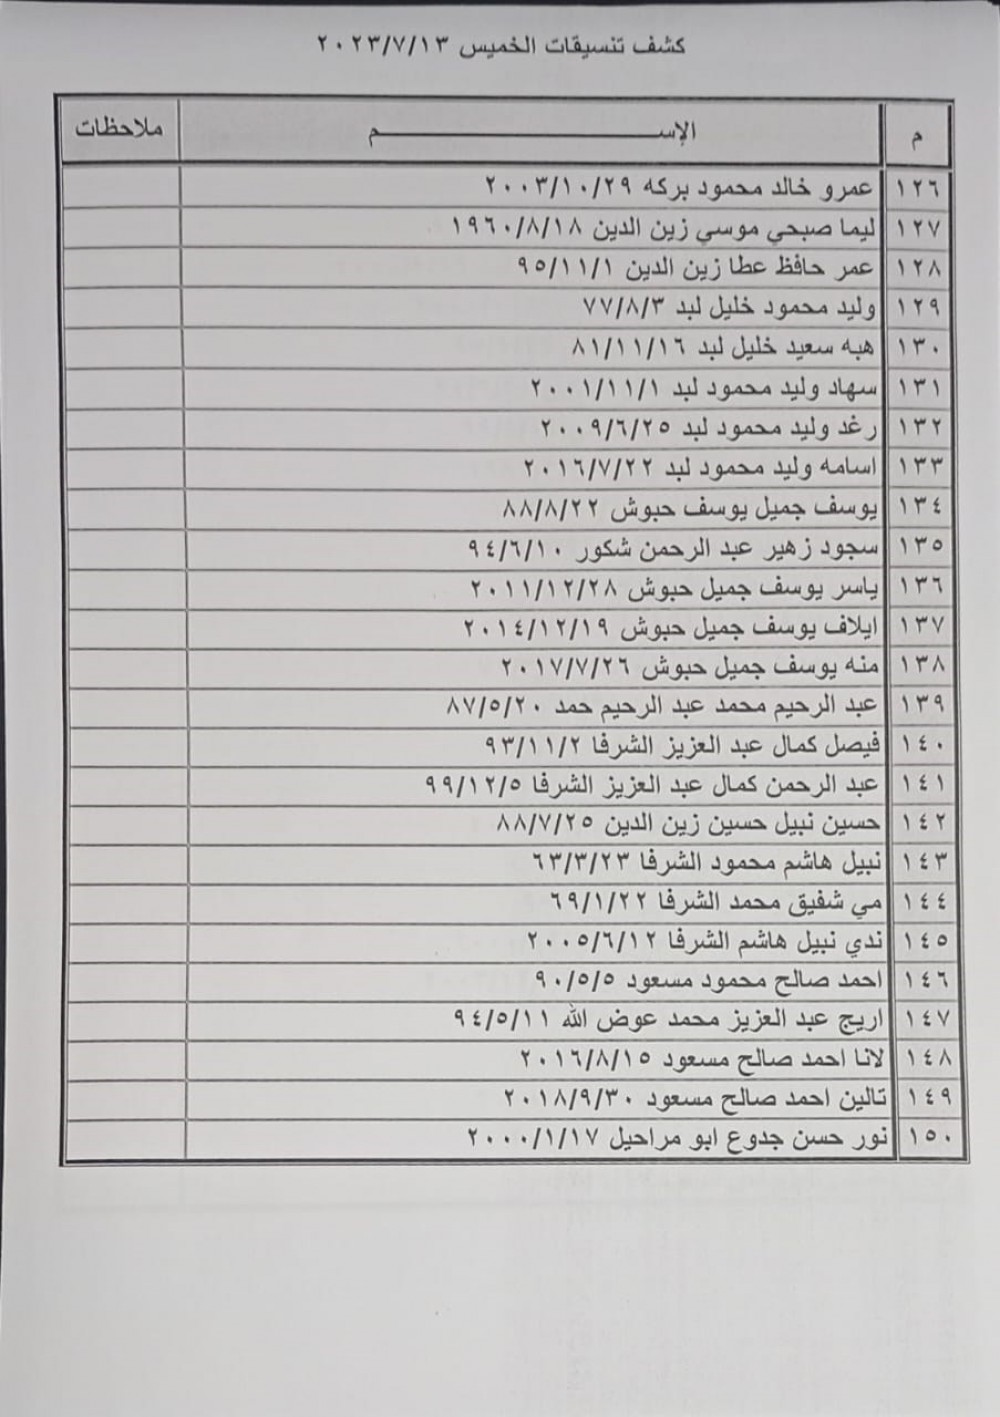 كشف تنسيقات الخميس ٢٠٢٣/٧/١٣
م الإســـــــــم ملاحظات
١٢٦ عمرو خالد محمود بركه ٢٠٠٣/١٠/٢٩
١٢٧ ليما صبحي موسي زين الدين ١٩٦٠/٨/١٨
١٢٨ عمر حافظ عطا زين الدين ٩٥/١١/١
١٢٩ وليد محمود خليل لبد ٧٧/٨/٣
١٣٠ هبه سعيد خليل لبد ٨١/١١/١٦
١٣١ سهاد وليد محمود لبد ٢٠٠١/١١/١
١٣٢ رغد وليد محمود لبد ٢٠٠٩/٦/٢٥
١٣٣ اسامه وليد محمود لبد ٢٠١٦/٧/٢٢
١٣٤ يوسف جميل يوسف حبوش ٨٨/٨/٢٢
١٣٥ سجود زهير عبد الرحمن شكور ٩٤/٦/١٠
١٣٦ ياسر يوسف جميل حبوش ٢٠١١/١٢/٢٨
١٣٧ ايلاف يوسف جميل حبوش ٢٠١٤/١٢/١٩
١٣٨ منه يوسف جميل حبوش ٢٠١٧/٧/٢٦
١٣٩ عبد الرحيم محمد عبد الرحيم حمد ٨٧/٥/٢٠
١٤٠ فيصل كمال عبد العزيز الشرفا ٩٣/١١/٢
١٤١ عبد الرحمن كمال عبد العزيز الشرفا ٩٩/١٢/٥
١٤٢ حسين نبيل حسين زين الدين ٨٨/٧/٢٥
١٤٣ نبيل هاشم محمود الشرفا ٦٣/٣/٢٣
١٤٤ مي شفيق محمد الشرفا ٦٩/١/٢٢
١٤٥ ندي نبيل هاشم الشرفا ٢٠٠٥/٦/١٢
١٤٦ احمد صالح محمود مسعود ٩٠/٥/٥
١٤٧ اريج عبد العزيز محمد عوض الله ٩٤/٥/١١
١٤٨ لانا احمد صالح مسعود ٢٠١٦/٨/١٥
١٤٩ تالين احمد صالح مسعود ٢٠١٨/٩/٣٠
١٥٠ نور حسن جدوع ابو مراحيل ٢٠٠٠/١/١٧